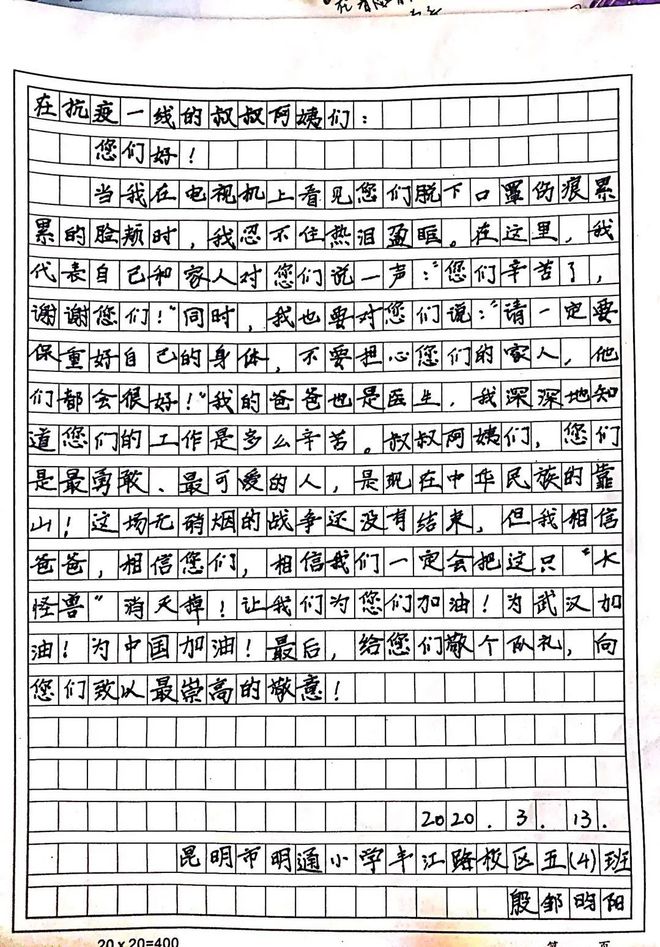 在抗疫一线的叔叔阿姨们：
您们好！
当我在电视机上看见您们脱下口罩伤痕累
累的脸颊时，我忍不住热泪盈眶。在这里，我
代表自己和家人对您们说一声：“您们辛苦了，
谢谢您们！”同时，我也要对您们说：“请一定要
保重好自己的身体，不要担心您们的家人，他
们都会很好！”我的爸爸也是医生，我深深地知
道您们的工作是多么辛苦。叔叔阿姨们，您们
是最勇敢、最可爱的人，是现在中华民族的靠
山！这场无硝烟的战争还没有结束，但我相信
爸爸，相信您们，相信我们一定会把这只“大
怪兽”消灭掉！让我们为您们加油！为武汉加
油！为中国加油！最后，给您们敬个队礼，向
您们致以最崇高的敬意！
2020.3.13.
昆明市明通小学丰江路校区五(4)班
殷邹昀阳
20×20=400